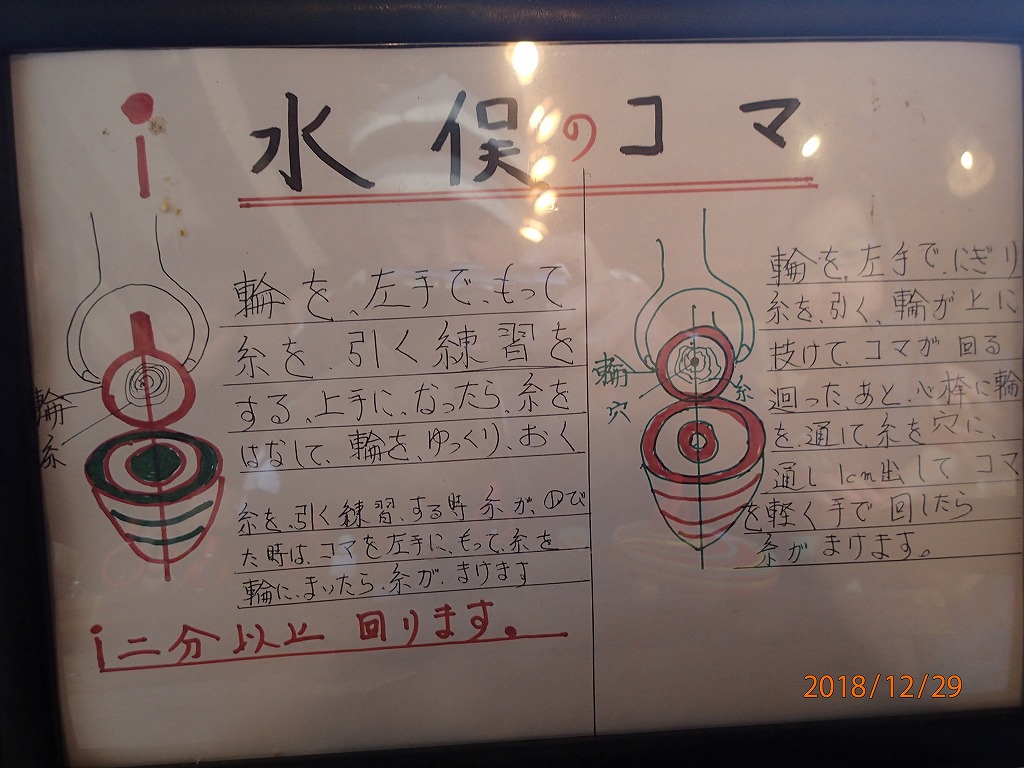 i 水俣のコマ
輪を、左手で、もって
糸を、引く練習を
する、上手に、なったら、糸を
はなして、輪を、ゆっくり、おく
糸を、引く練習、する時 糸が、のび
た時は、コマを左手に、もって、糸を
輪に、まいたら、糸が、まけます
i 二分以上 回ります。
輪
糸
輪を、左手で、にぎり
糸を、引く、輪が上に
技けて、コマが回る
迴った、あと、心棒に輪
を、通して、糸を穴に、
通し1cm出してコマ
を軽く手で回したら
糸がまけます。
輪
穴
糸
2018/12/29